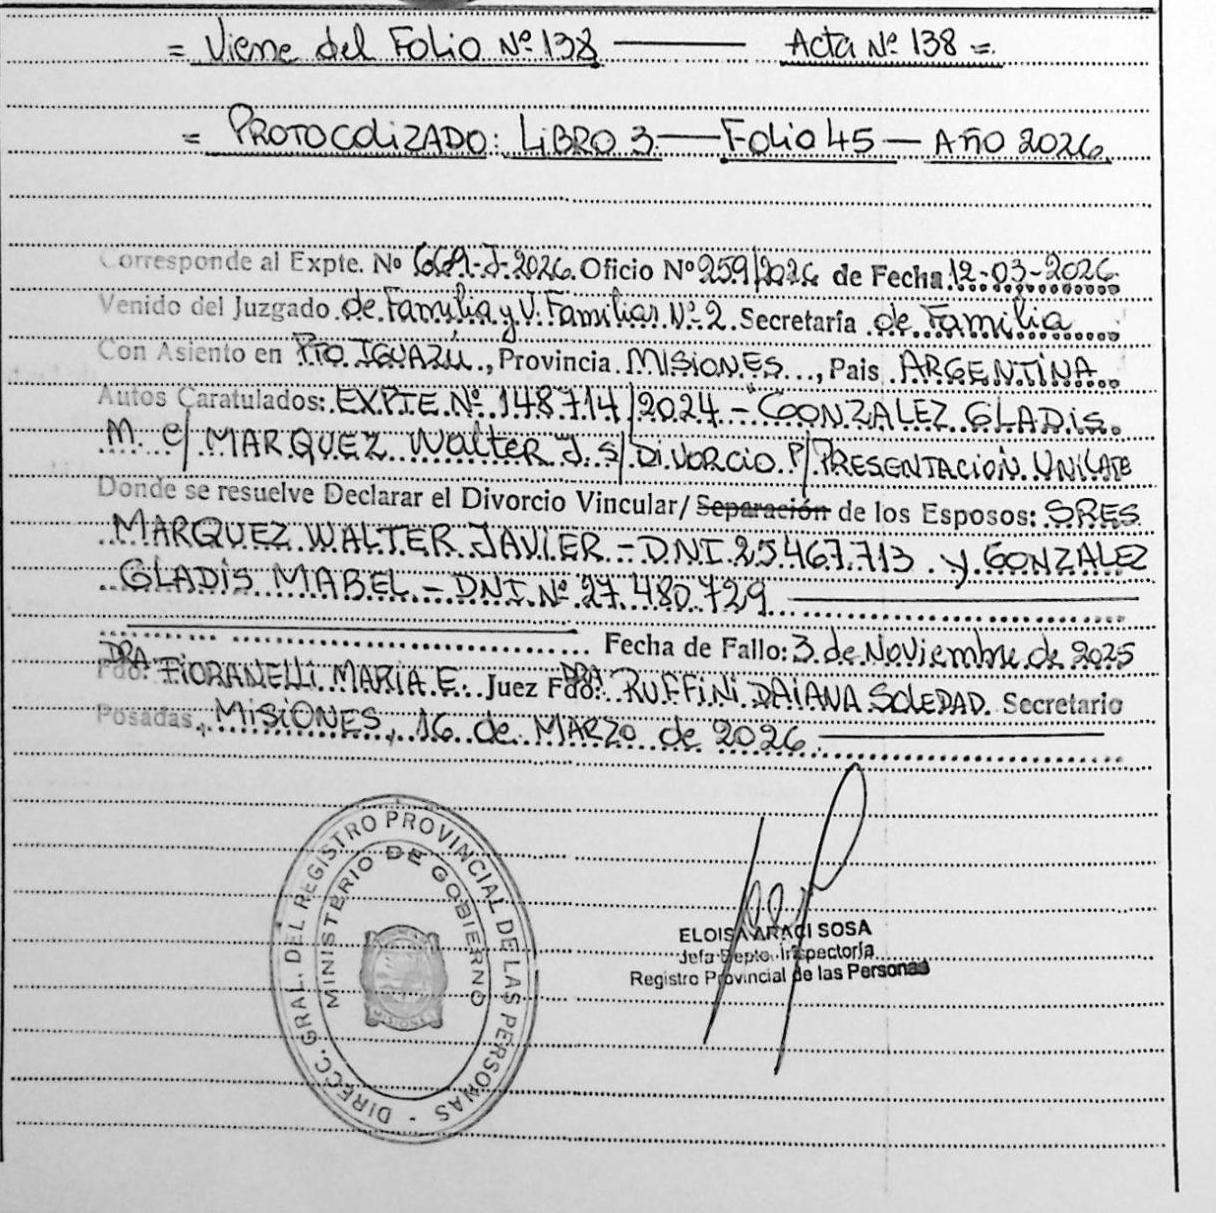 = Viene del Folio Nº 138 — Acta Nº 138 =
= PROTOCOLIZADO: LIBRO 3 — Folio 45 — AÑO 2026
Corresponde al Expte. Nº -J-2026. Oficio Nº 259/2026 de Fecha 12-03-2026
Venido del Juzgado de Familia y V. Familiar Nº 2. Secretaría de Familia
Con Asiento en Pto. IGUAZÚ, Provincia MISIONES, Pais ARGENTINA
Autos Caratulados: EXPTE. Nº 148714/2024 - "GONZALEZ GLADIS
M. c/ MARQUEZ Walter J. s/ DIVORCIO P/ PRESENTACION UNILATE
Donde se resuelve Declarar el Divorcio Vincular/ Separación de los Esposos: SRES
MARQUEZ WALTER JAVIER - DNI 25.467.713 y GONZALEZ
GLADIS MABEL - DNI. Nº 27.480.729
Fecha de Fallo: 3 de Noviembre de 2025
Fdo. DRA FIORANELLI MARIA E. Juez Fdo. DRA RUFFINI DAIANA SOLEDAD. Secretario
Posadas, MISIONES, 16 de MARZO de 2026
DIRECC. GRAL. DEL REGISTRO PROVINCIAL DE LAS PERSONAS -
MINISTERIO DE GOBIERNO
MISIONES
ELOISA ARACI SOSA
Jefa Depto. Inspectoría
Registro Provincial de las Personas